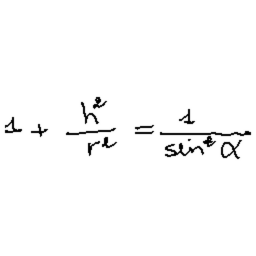 1 + h²/r² = 1/sin² α